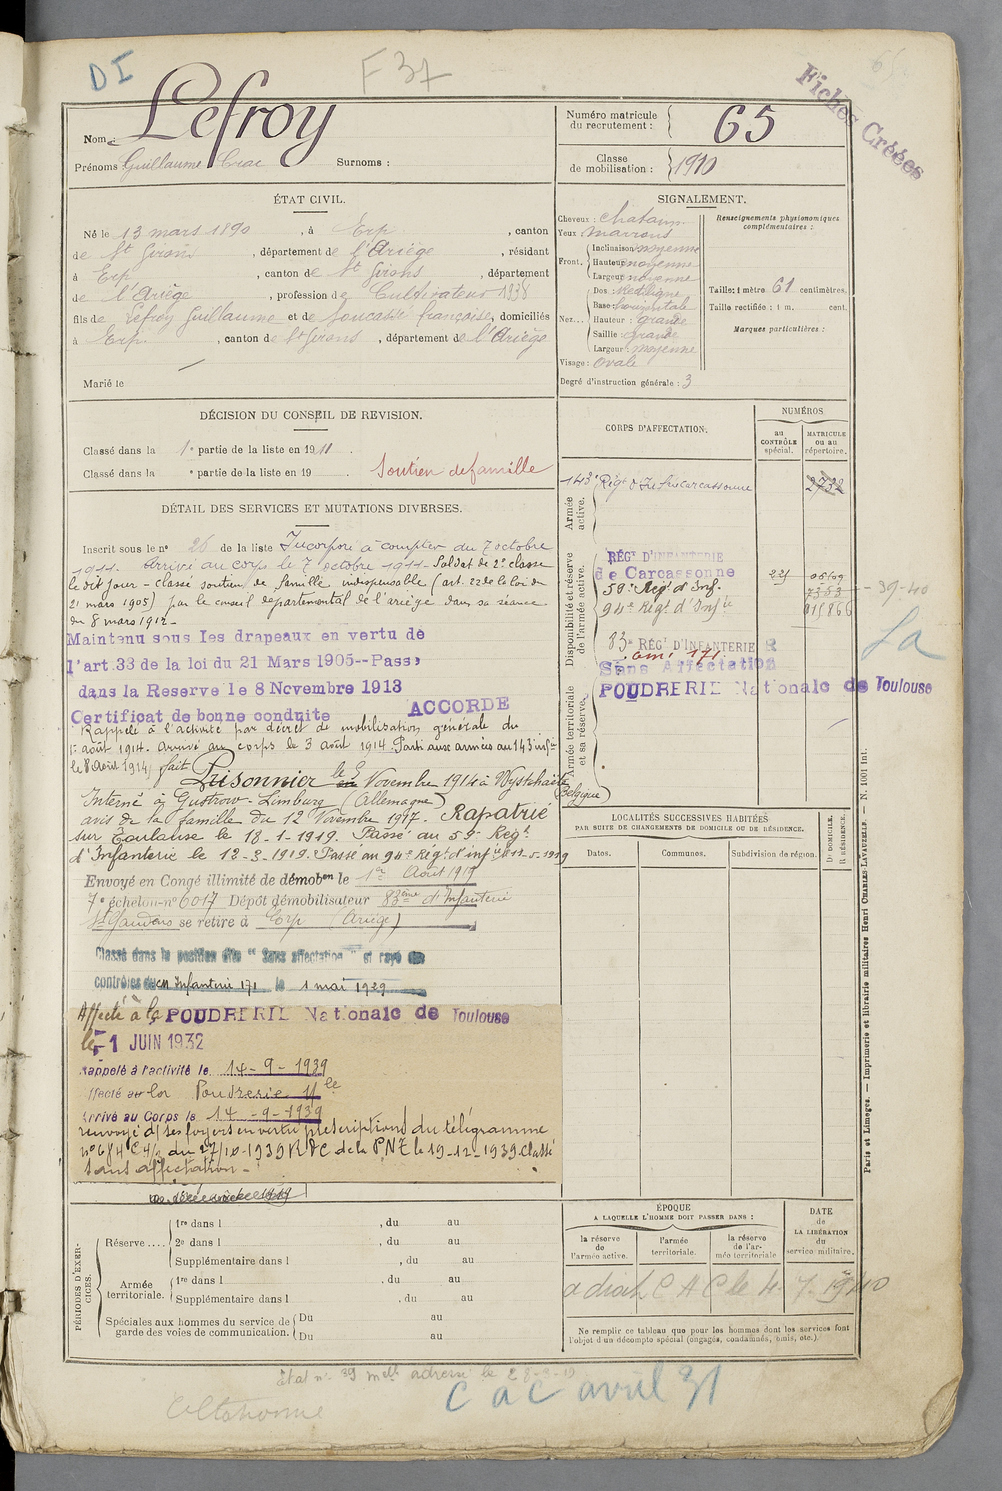 DI
F 37
Fiches Créées
Nom : Lefroy
Prénoms Guillaume Surnoms :
Numéro matricule du recrutement : 65
Classe de mobilisation : 1910
ÉTAT CIVIL.
Né le 13 mars 1890, à Erp, canton
de St Girons, département de l'Ariège, résidant
à Erp, canton de St Girons, département
de l'Ariège, profession de Cultivateur 1938
fils de Lefroy Guillaume et de Soucasse françoise, domiciliés
à Erp, canton de St Girons, département de l'Ariège
Marié le
SIGNALEMENT.
Cheveux : chatains
Yeux : marrons
Front. Inclinaison moyenne
Hauteur moyenne
Largeur moyenne
Nez... Dos : rectiligne
Base horizontale
Hauteur : grande
Saillie : grande
Largeur : moyenne
Visage : ovale
Degré d'instruction générale : 3
Renseignements physionomiques complémentaires :
Taille : 1 mètre 61 centimètres.
Taille rectifiée : 1 m. cent.
Marques particulières :
DÉCISION DU CONSEIL DE REVISION.
Classé dans la 1e partie de la liste en 1911.
Classé dans la e partie de la liste en 19 .
Soutien de famille
DÉTAIL DES SERVICES ET MUTATIONS DIVERSES.
Inscrit sous le n° 26 de la liste Incorporé à compter du 7 octobre
1911. Arrivé au corps le 7 octobre 1911. Soldat de 2e classe
le dit jour - classé soutien de famille indispensable (art. 22 de la loi du
21 mars 1905) par le conseil départemental de l'ariège dans sa séance
du 8 mars 1912 -
Maintenu sous les drapeaux en vertu de
l'art 33 de la loi du 21 Mars 1905--Passé
dans la Reserve le 8 Novembre 1913
Certificat de bonne conduite ACCORDE
Rappelé à l'activité par décret de mobilisation générale du
1er août 1914. Arrivé au corps le 3 août 1914 Parti aux armées au 143e infie
le 8 août 1914, fait Prisonnier le 2 Novembre 1914 à Wystchaëte (Belgique)
Interné à Gustrow - Limburg (Allemagne)
avis de la famille du 12 Novembre 1917. Rapatrié
sur Toulouse le 18-1-1919. Passé au 59e Régt
d'Infanterie le 12-3-1919. Passé au 94e Régt d'infie le 11-5-1919
Envoyé en Congé illimité de démobon le 1er Août 1919
7e échelon - n° 6017 Dépôt démobilisateur 83ème d'Infanterie
St Gaudens se retire à Erp (Ariège)
Classé dans la position dite " Sans affectation " et rayé des
contrôles du CM Infanterie 171 le 1 mai 1929
Affecté à la POUDRERIE Nationale de Toulouse
le 1 JUIN 1932
Rappelé à l'activité le 14-9-1939
Affecté au la Poudrerie Nle
Arrivé au Corps le 14-9-1939
renvoyé ds ses foyers en vertu prescriptions du télégramme
n° 684 C 4/2 du 27/10-1939 R de la PNT le 19-12-1939. Classé
sans affectation -
CORPS D'AFFECTATION.
NUMÉROS
au CONTRÔLE spécial.
MATRICULE ou au répertoire.
Armée active.
143e Régt d'Infie Carcassonne 2732
Disponibilité et réserve de l'armée active.
RÉGt D'INFANTERIE
de Carcassonne
59e Régt d'Inf. 7353
94e Régt d'Infie
83e RÉGt D'INFANTERIE
c.m.i 171
Sans Affectation
POUDRERIE Nationale de Toulouse
39-40
Armée territoriale et sa réserve.
LOCALITÉS SUCCESSIVES HABITÉES
PAR SUITE DE CHANGEMENTS DE DOMICILE OU DE RÉSIDENCE.
Dates. Communes. Subdivision de région. D: DOMICILE. R: RÉSIDENCE.
PÉRIODES D'EXERCICES.
Réserve.... 1re dans l , du au
2e dans l , du au
Supplémentaire dans l , du au
Armée territoriale. 1re dans l , du au
Supplémentaire dans l , du au
Spéciales aux hommes du service de garde des voies de communication. Du au
Du au
ÉPOQUE
A LAQUELLE L'HOMME DOIT PASSER DANS :
la réserve de l'armée active.
l'armée territoriale.
la réserve de l'armée territoriale
DATE de LA LIBÉRATION du service militaire.
C A C le 4. 7. 1940
Ne remplir ce tableau que pour les hommes dont les services font
l'objet d'un décompte spécial (engagés, condamnés, omis, etc.).
Paris et Limoges. — Imprimerie et librairie militaires Henri CHARLES-LAVAUZELLE. — N. 1001 Int.
C a C avril 31